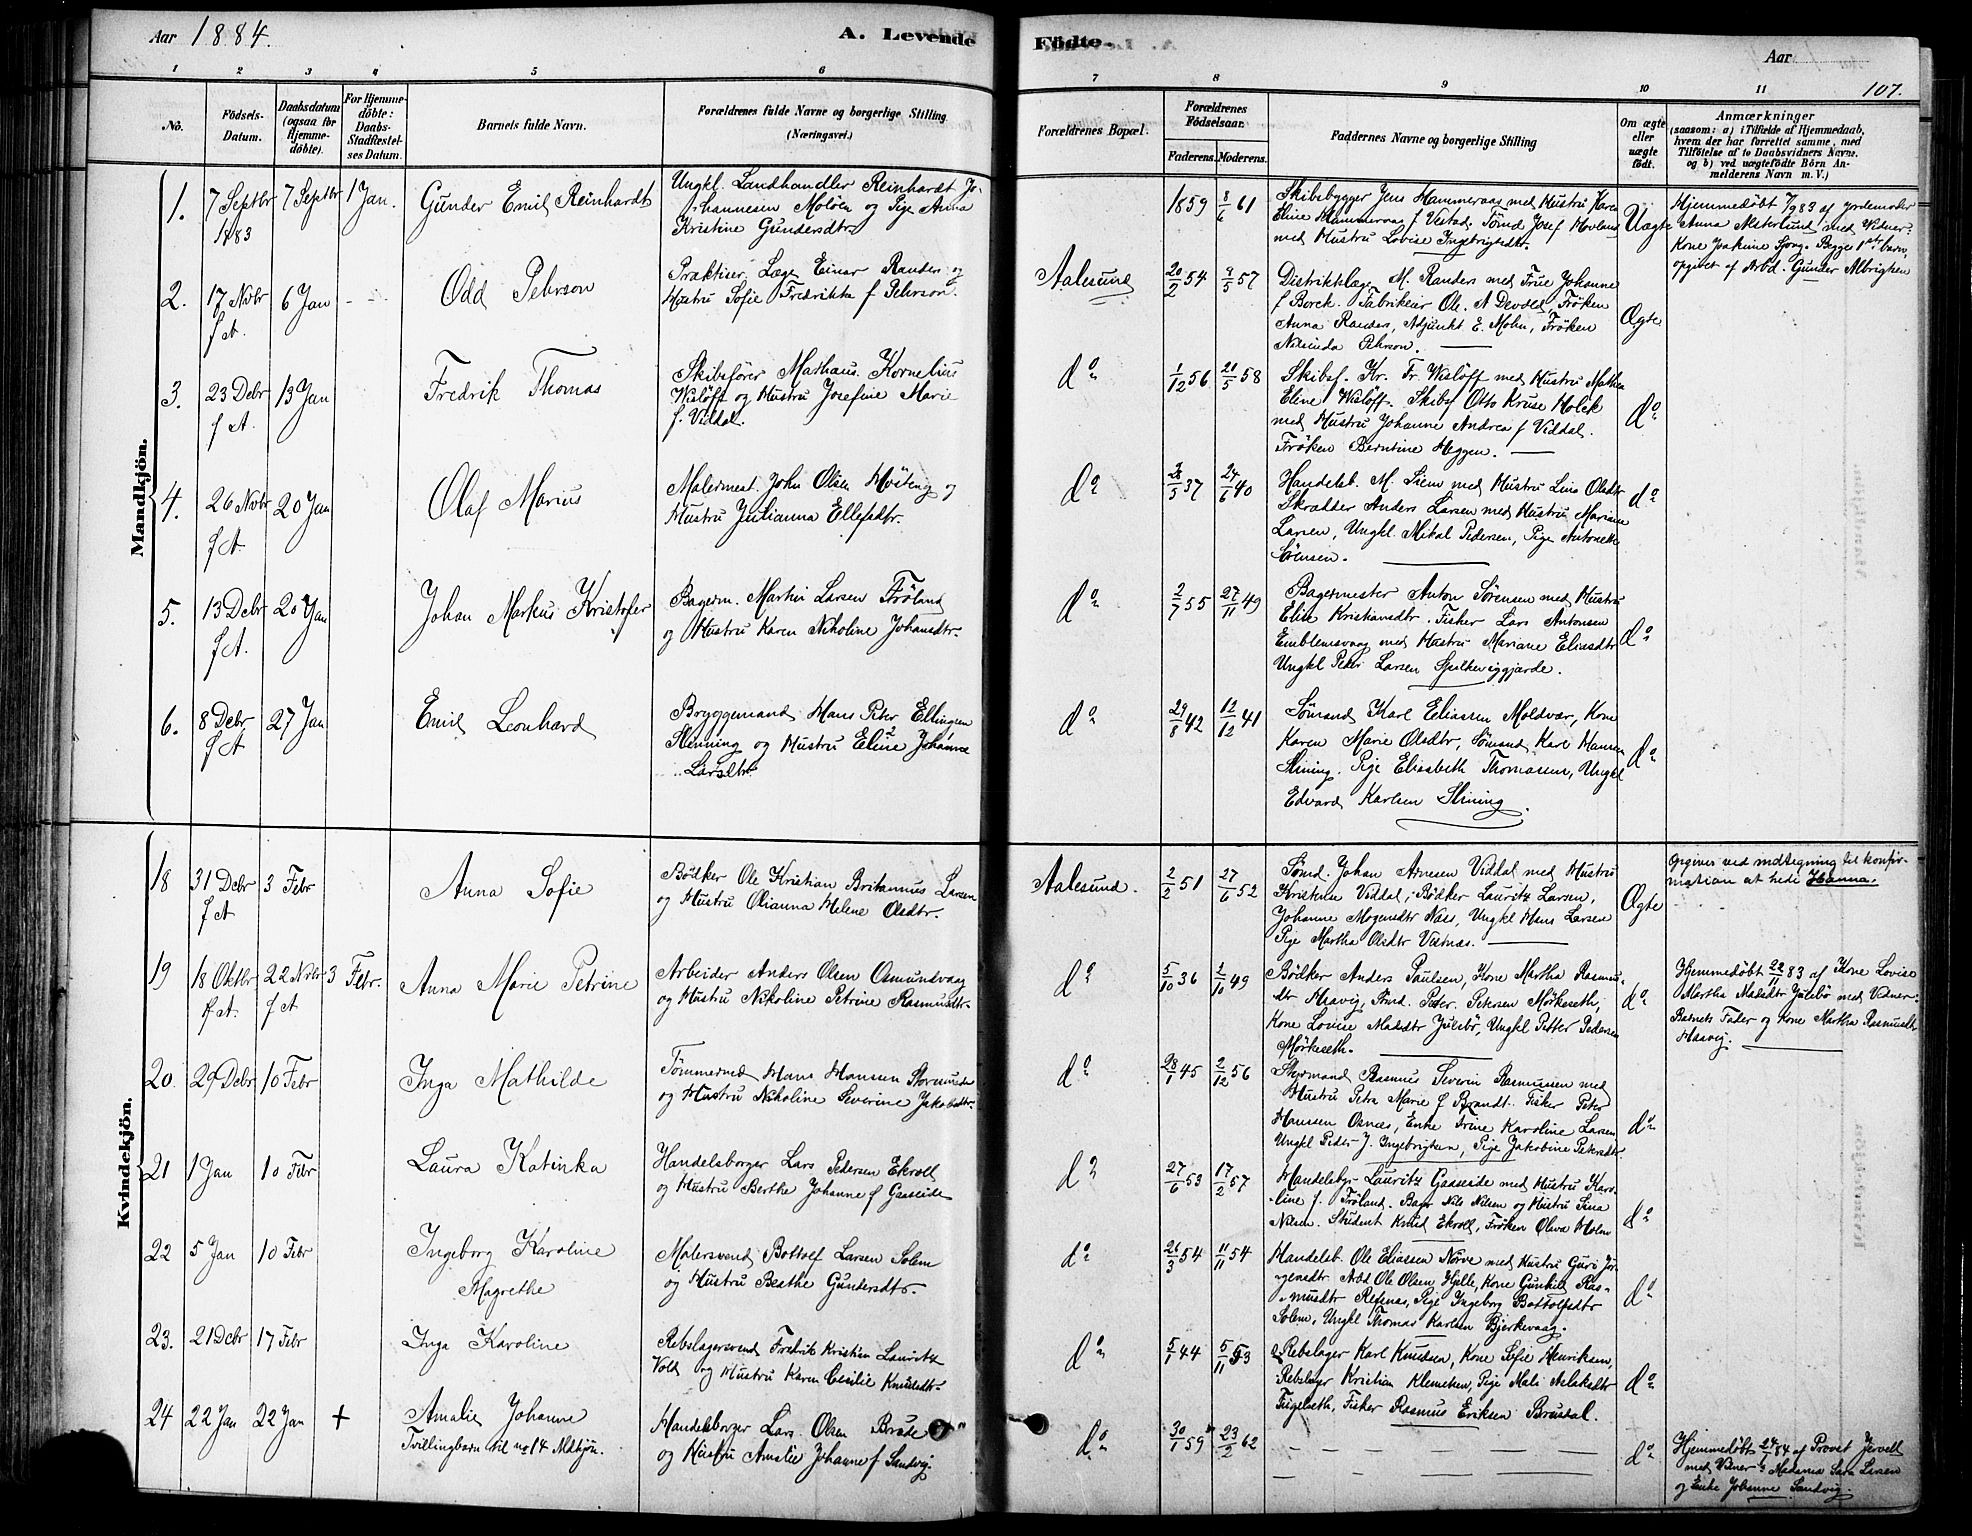 Aar 1884.
A. Levende
Fødte.
Aar
107.
1 2 3 4 5 6 7 8 9 10 11
No.
Fødsels-Datum.
Daabsdatum (ogsaa for Hjemmedøbte).
For Hjemmedøbte: Daabs-Stadfæstelses Datum.
Barnets fulde Navn.
Forældrenes fulde Navne og borgerlige Stilling (Næringsvei.)
Forældrenes Bopæl.
Forældrenes Fødselsaar.
Faderens. Moderens.
Faddernes Navne og borgerlige Stilling
Om ægte eller uægte født.
Anmærkninger
(saasom: a) i Tilfælde af Hjemmedaab, hvem der har forrettet samme, med Tilføielse af to Daabsvidners Navne. og b) ved uægtefødte Børn Anmelderens Navn m. V.)
Mandkjön.
1. 7 Septbr 1883 7 Septbr 1 Jan.
Gunder Emil Reinhardt
Ungkl. Landhandler Reinhardt Jo-
hannesen Moløen og Pige Anna
Kristine Gundersdtr.
1859 8/6 61
Skibsbygger Jens Hammeraas med Hustru Karen
Eline Hammervaag f. Vestad, Sømd Josef Hovland
med Hustru Lovise Ingebrigtsdtr.
Uægte
Hjemmedøbt 7/9 83 af Jordemoder
Anna Akslerlund med Vidner:
Kone Joakime Sjong. Begge 1ste barn,
opgivet af Arbd. Gunder Albrigtsen
2. 17 Novbr f A. 6 Jan
Odd Pehrson
Praktiser. Læge Einar Randers og
Hustru Sofie Fredrikke f Pehrson.
Aalesund
20/2 54 9/5 57
Distriktslæge M. Randers med Frue Johanne
f Borck. Fabrikeier Ole. A Devold, Frøken
Anna Randers, Adjunkt E. Mohn, Frøken
Pehrson.
Ægte
3. 23 Debr f A. 13 Jan
Fredrik Thomas
Skibsfører Mathæus Kornelius
Wisløff og Hustru Josefine Marie
f. Viddal.
do
1/12 56 21/5 58
Skibsf. Kr. Fr. Wisløff med Hustru Mathea
Eline Wisløff. Skibsf Otto Kruse Holck
med Hustru Johanne Andrea f Viddal.
Frøken Berntine Heggen.
do
4. 26 Novbr f A. 20 Jan
Olaf Marius
Malermest. John Olsen Høiteng og
Hustru Julianna Ellefsdtr.
do
28/5 37 24/6 40
Handelsb. M. Siem med Hustru Lina Olsdtr
Skrædder Anders Larsen med Hustru Mariane
Larsen, Ungkl. Mikal Pedersen, Pige Antonette
Sørensen.
do
5. 13 Debr f A. 20 Jan
Johan Markus Kristofer
Bagerm. Martin Larsen Frøland
og Hustru Karen Nikoline Johansdtr.
do
2/7 55 27/11 49
Bagermester Anton Sørensen med Hustru
Elise Kristiansdtr. Fisker Lars Antonsen
Emblemsvaag med Hustru Mariane Eliasdtr
Ungkl Peter Larsen Spilkeviggjærde.
do
6. 8 Debr f A 27 Jan
Emil Leonhard
Bryggemand Hans Peter Ellingsen
Slinning og Hustru Eline Johanne
Larsdtr.
do
29/8 42 12/12 41
Sømand Karl Eliassen Moldvær, Kone
Karen Marie Olsdtr, Sømand Karl Hansen
Slining. Pige Elisabeth Thomasen, Ungkl
Edvard Karlsen Slining.
do
Kvindekjön.
18 31 Debr f A 3 Febr
Anna Sofie
Bødker Ole Kristian Britannus Larsen
og Hustru Olianna Helene Olsdtr.
Aalesund.
2/2 51 27/6 52
Sømd. Johan Arnesen Viddal med Hustru
Kristense Viddal; Bødker Lauritz Larsen,
Johanne Mogensdtr Næss, Ungkl Hans Larsen
Pige Martha Olsdtr Vestnæs.
Ægte
Opgives ved indtegning til konfir-
mation at hede Hanna.
19 18 Oktbr f A. 22 Novbr f A 3 Febr.
Anna Marie Petrine
Arbeider Anders Olsen Osmundsvaag
og Hustru Nikoline Petrine Rasmusdtr.
do
5/10 36 2/10 49
Bødker Anders Paulsen, Kone Martha Rasmus-
dtr Haavig, Sømd. Peter Petersen Mørkeseth,
Kone Lovise Madsdtr Julsbø, Ungkl Petter Pedersen
Mørkeseth.
do
Hjemmedøbt 22/11 83 af Kone Lovise
Martha Madsdtr Julsbø med Vidner:
Barnets Fader og Kone Martha Rasmusdtr
Haavig.
20. 29 Debr 10 Febr
Inga Mathilde
Tømmermd Hans Hansen
og Hustru Nikoline Severine Jakobsdtr.
do
28/1 45 2/12 56
Styrmand Rasmus Severin Rasmussen med
Hustru Petra Marie f Brandt. Fisker Peter
Hanssen Osnæs, Enke Trine Karoline Larsen
Ungkl Peder J. Ingebrigtsen, Pige Jakobine Petersdtr.
do
21 1 Jan 10 Febr
Laura Katinka
Handelsborger Lars Pedersen Ekroll
og Hustru Berthe Johanne f Gaaseide
do
27/6 53 17/2 57
Handelsbgr. Lauritz Gaaseide med Hustru Karo-
line f. Frøland. Bager Nils Nilsen og Hustru Sina
Nilsen. Student Knud Ekroll, Frøken Oliva Holm
do
22 5 Jan 10 Febr
Ingeborg Karoline
Magrethe
Malersvend Bottolf Larsen Solem
og Hustru Berthe Gundersdtr.
do
21/3 54 11/11 54
Handelsb. Ole Eliassen Nørve med Hustru Guri Jør-
gensdtr. Arbd Ole Olsen Hjelle, Kone Gunhild Ras-
musdtr Refsnæs, Pige Ingeborg Bottolfsdtr
Solem, Ungkl Thomas Karlsen Bjerkevaag.
do
23. 21 Debr 17 Febr
Inga Karoline
Rebslagersvend Fredrik Kristian Lauritz
Vold og Hustru Karen Cecilie Knudsdtr.
do
5/1 44 5/11 53
Rebslager Karl Knudsen, Kone Sofie Henriksen,
Rebslager Kristian Klemetsen, Pige Mali Aslaksdtr
Fugelseth, Fisker Rasmus Eriksen Brusdal.
do
24 22 Jan 22 Jan +
Amalie Johanne
Tvillingbarn til no 14 Mdkjøn.
Handelsborger Lars Olsen Brude
og Hustru Amalie Johanne f Sandvig.
do
30/1 59 23/2 62
do
Hjemmedøbt 24/1 84 af Provst Jervell
med Vidner: Madame Sara Larsen
og Enke Johanne Sandvig.